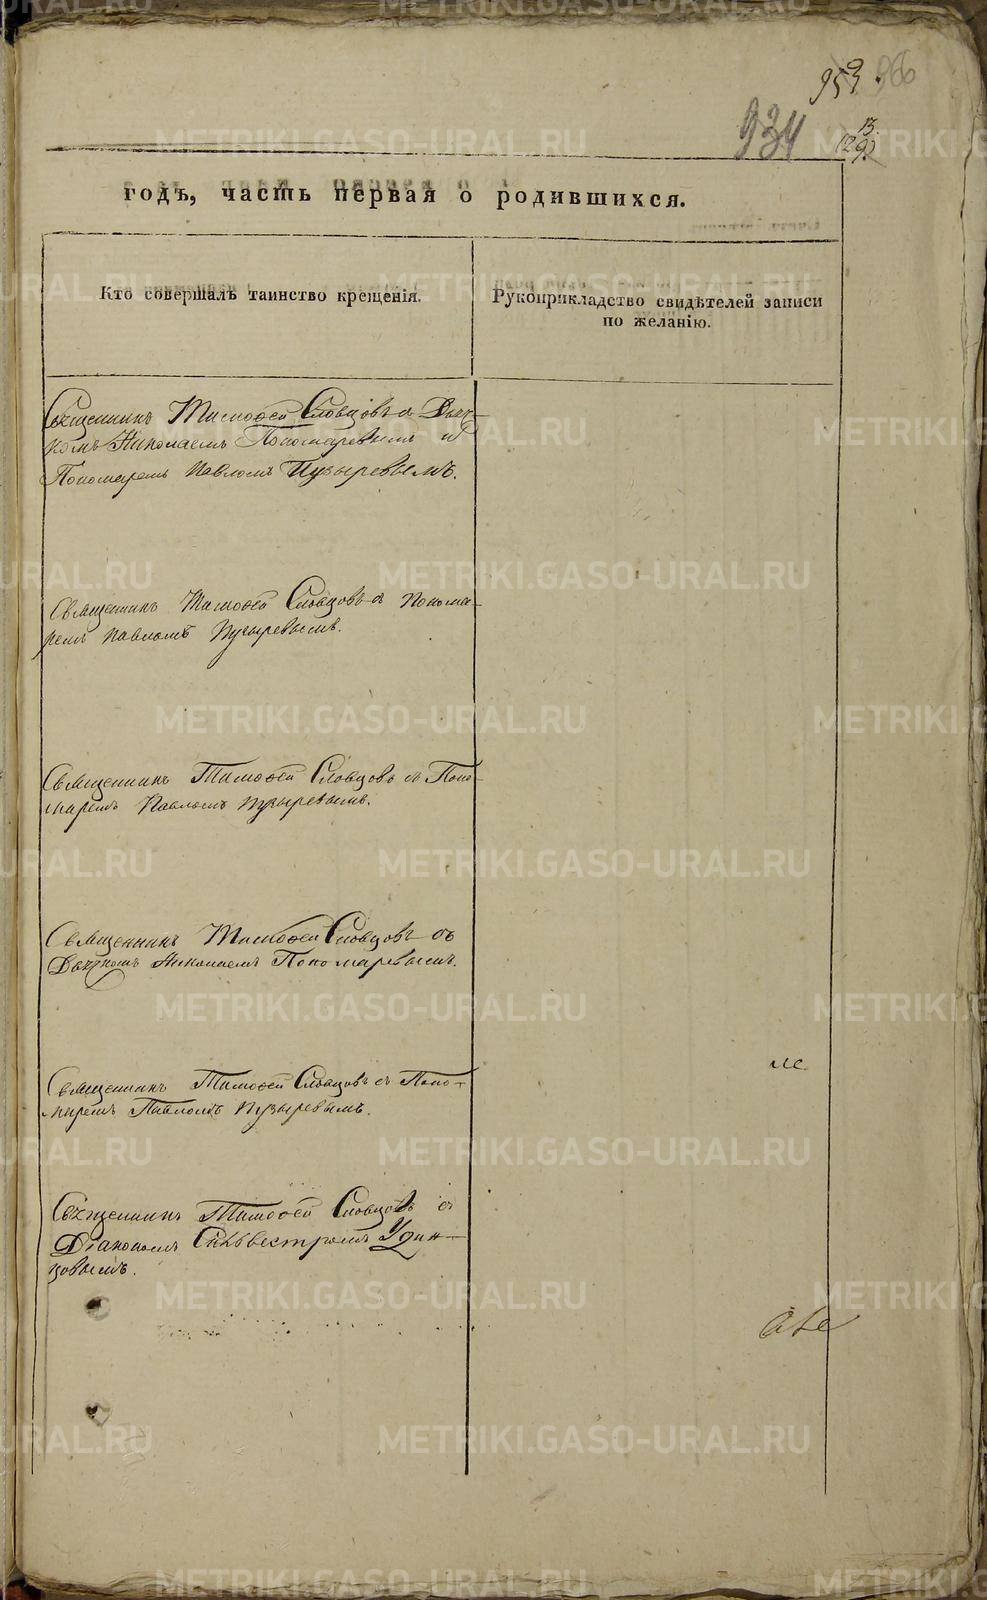 959 . 966
934
годъ, часть первая о родившихся.
Кто совершалъ таинство крещенія.
Рукоприкладство свидѣтелей записи
по желанію.
Священникъ Тимофей Словцовъ съ Дьяч-
комъ Николаемъ Пономаревымъ и
Пономаремъ Павломъ Пузыревымъ.
Священникъ Тимофей Словцовъ съ Понома-
ремъ Павломъ Пузыревымъ.
Священникъ Тимофей Словцовъ съ Поно-
маремъ Павломъ Пузыревымъ.
Священникъ Тимофей Словцовъ съ
Дьячкомъ Николаемъ Пономаревымъ.
Священникъ Тимофей Словцовъ съ Поно-
маремъ Павломъ Пузыревымъ.
Священникъ Тимофей Словцовъ съ
Діакономъ Силвестромъ Удин-
цовымъ.
METRIKI.GASO-URAL.RU